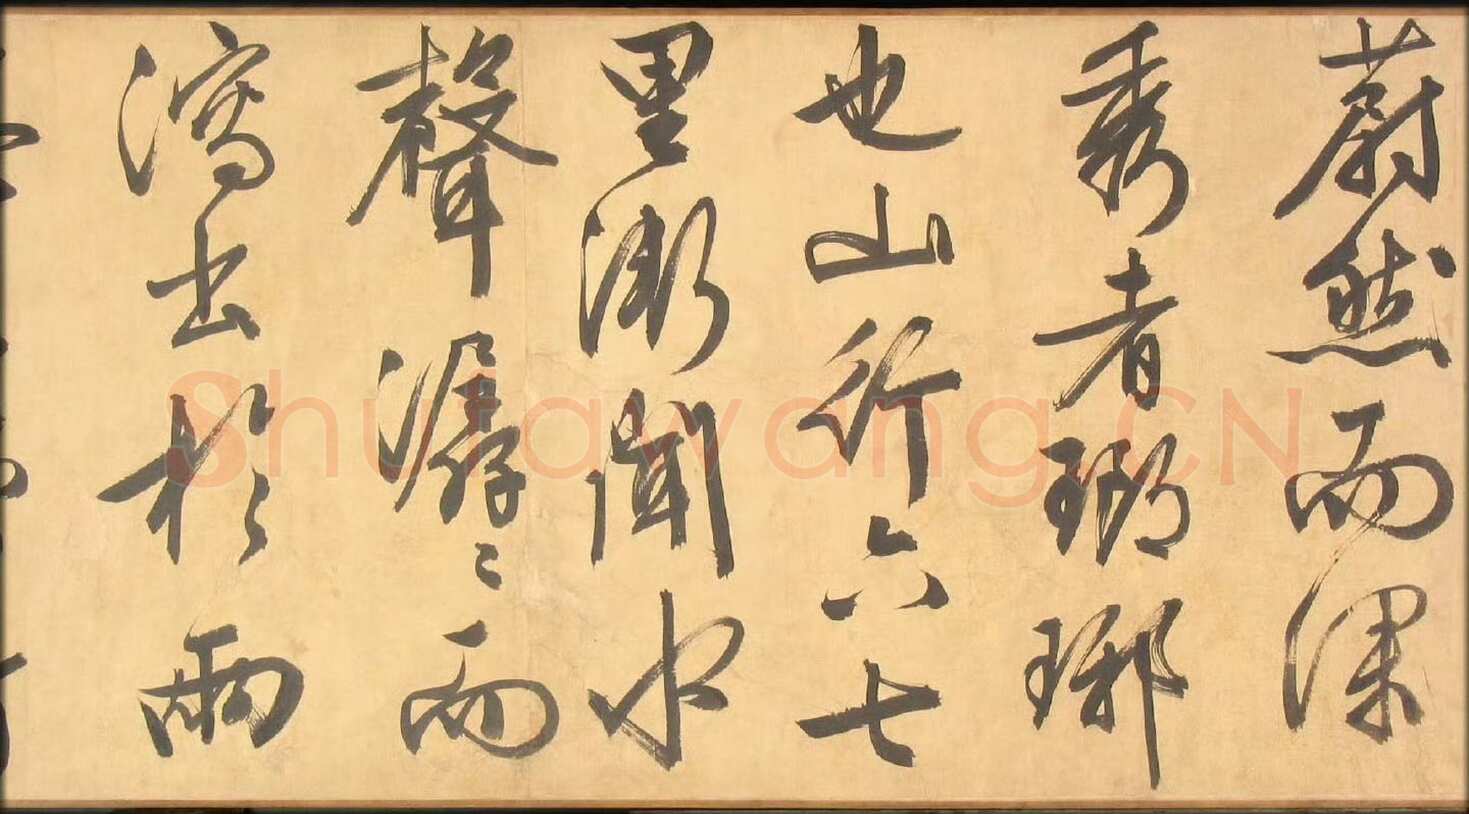 蔚然而深
秀者瑯琊
也山行六七
里漸聞水
聲潺〻而
瀉出於兩
Shufawang.CN